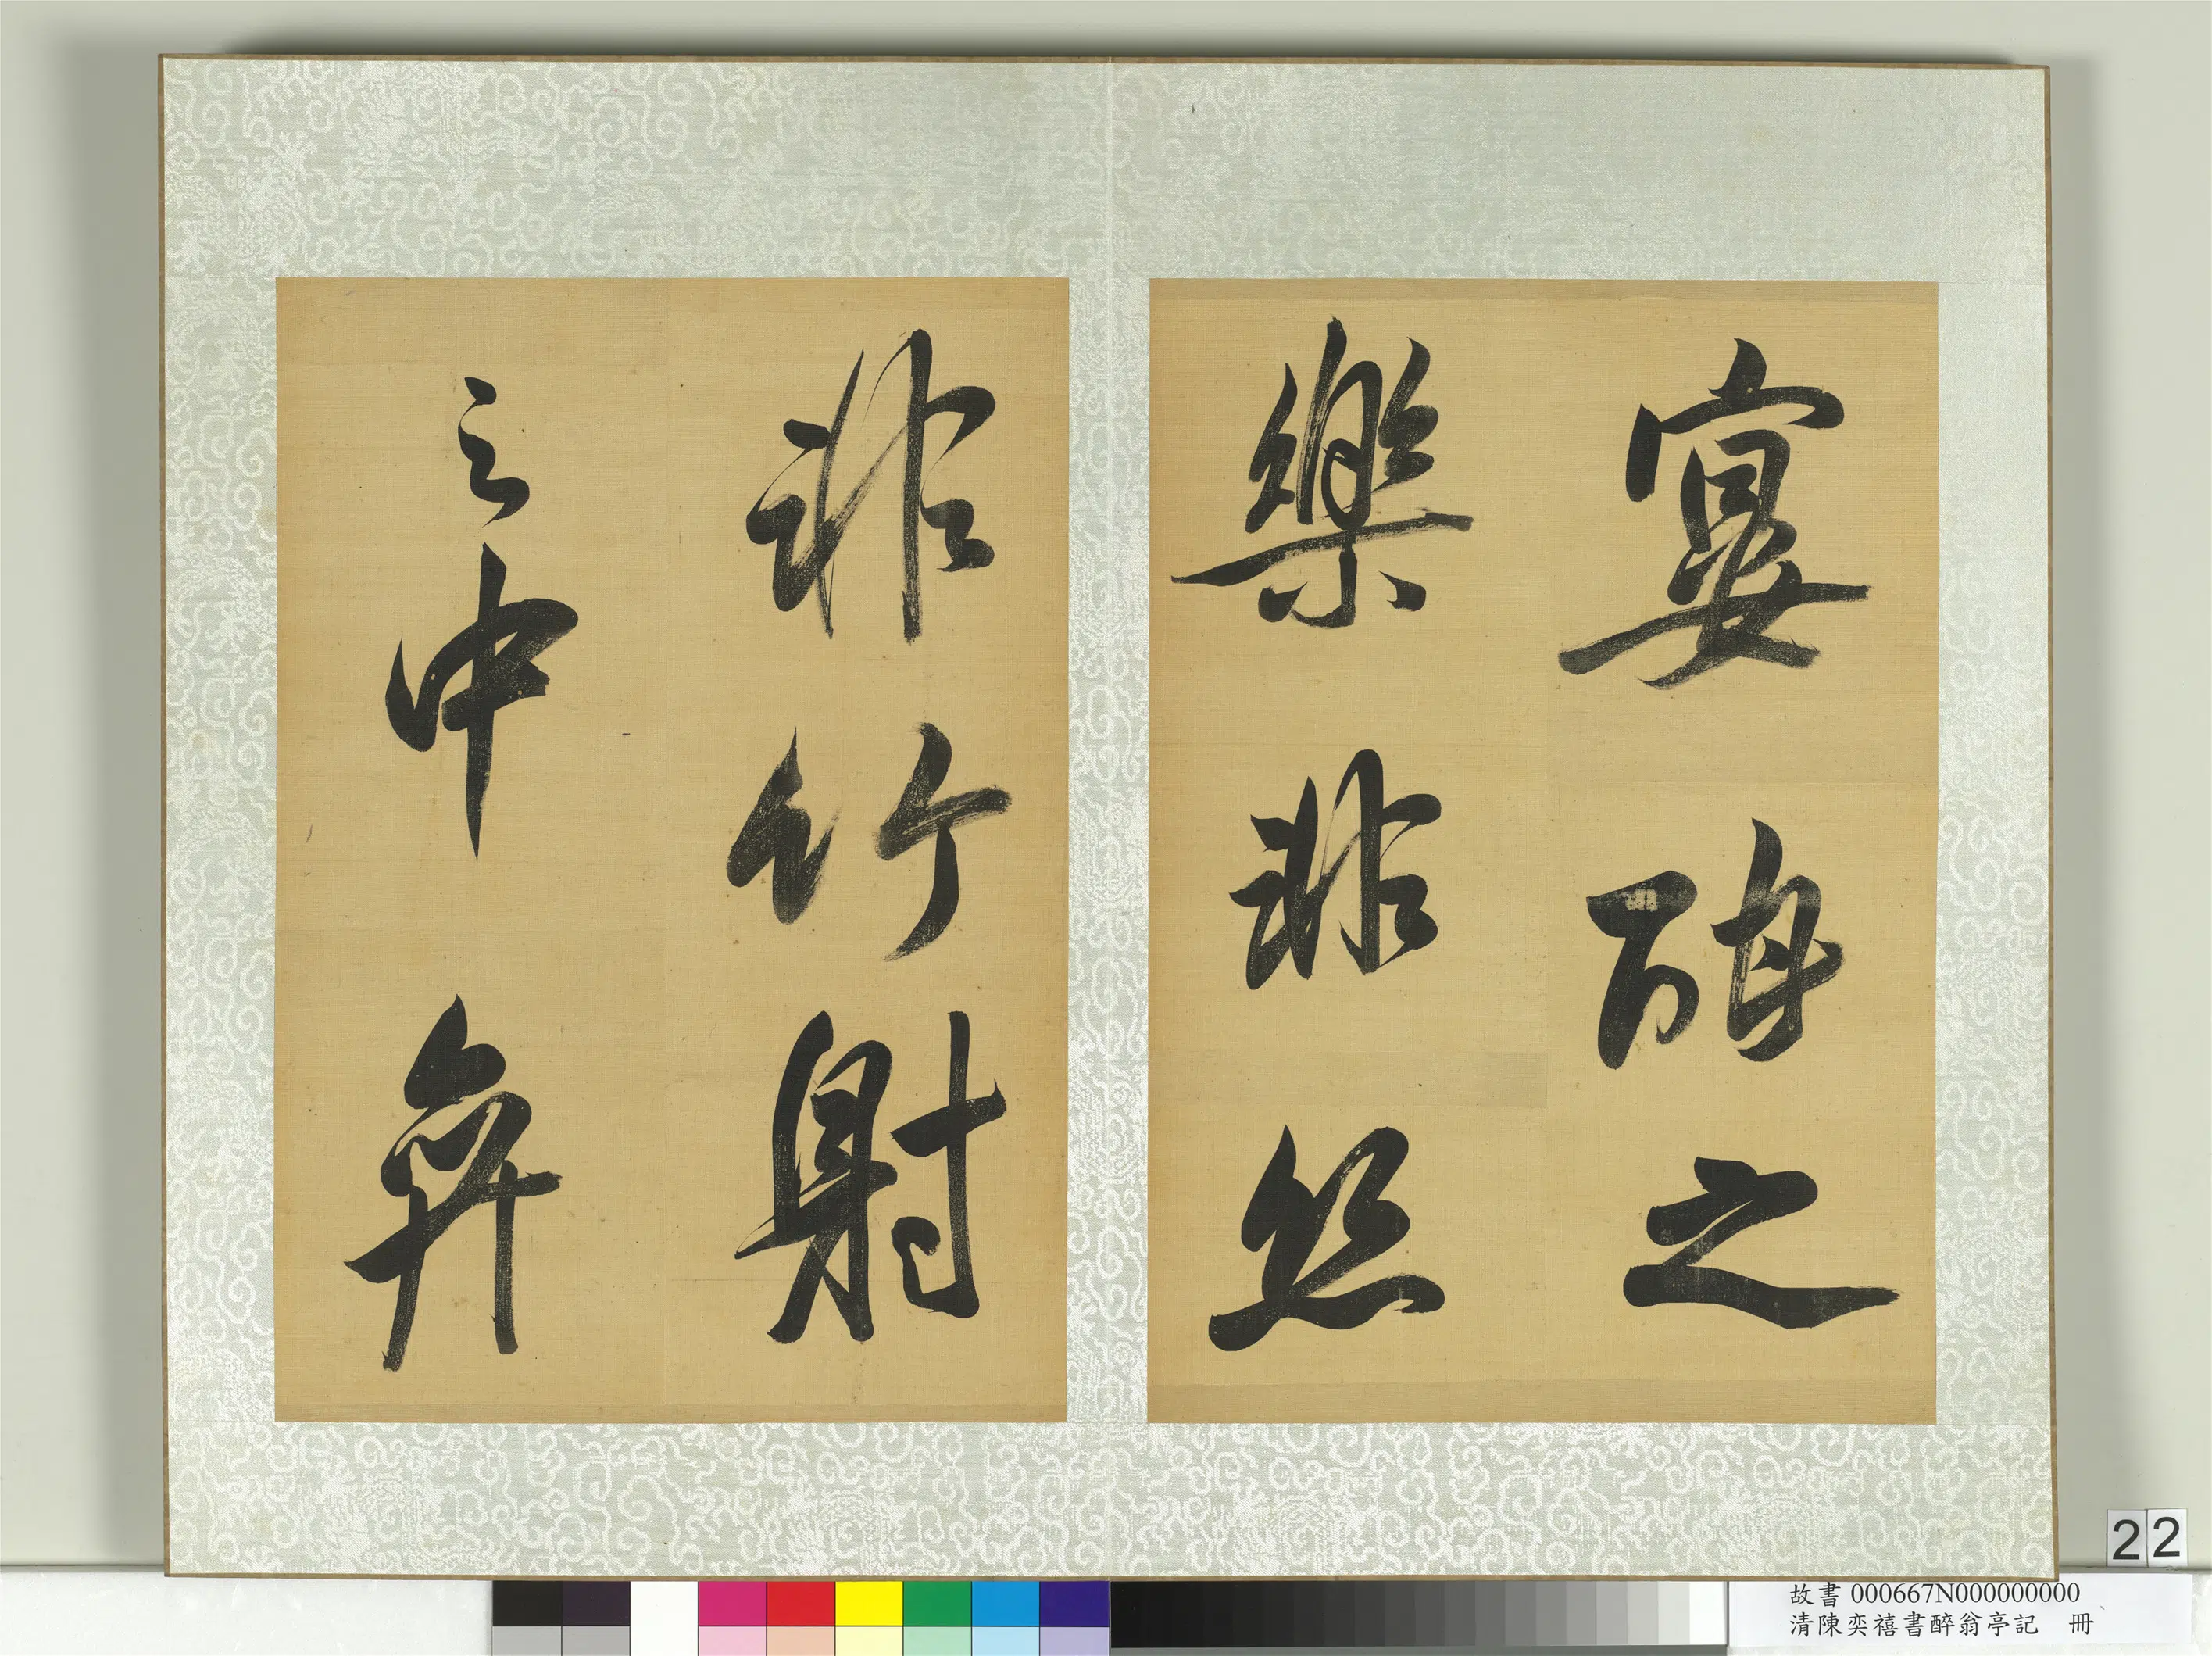 宴酣之
樂非絲
非竹射
之中弈
22
故書 000667N000000000
清陳奕禧書醉翁亭記 冊